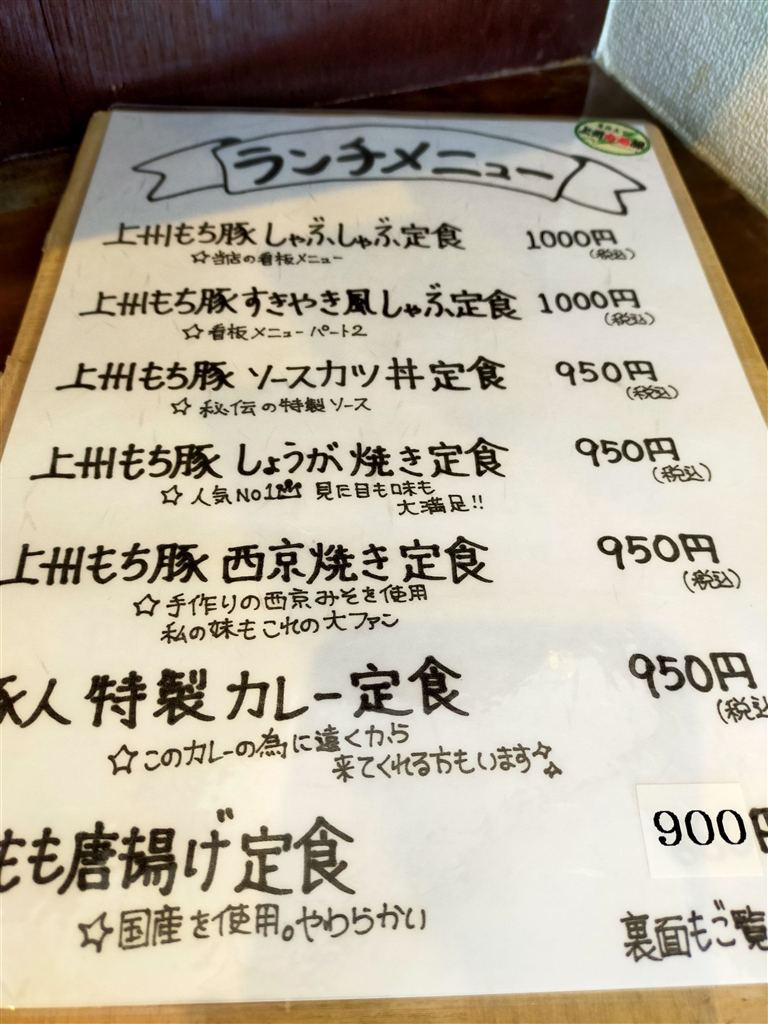 ランチメニュー
上州もち豚 しゃぶしゃぶ定食 1000円
(税込)
☆当店の看板メニュー
上州もち豚 すきやき風しゃぶ定食 1000円
(税込)
☆看板メニューパート2
上州もち豚 ソースカツ丼定食 950円
(税込)
☆秘伝の特製ソース
上州もち豚 しょうが焼き定食 950円
(税込)
☆人気No1 見た目も味も
大満足!!
上州もち豚 西京焼き定食 950円
(税込)
☆手作りの西京みそを使用
私の妹もこれの大ファン
豚人 特製カレー定食 950円
(税込
☆このカレーの為に遠くから
来てくれる方もいます
もも唐揚げ定食 900円
☆国産を使用。やわらかい
裏面もご覧